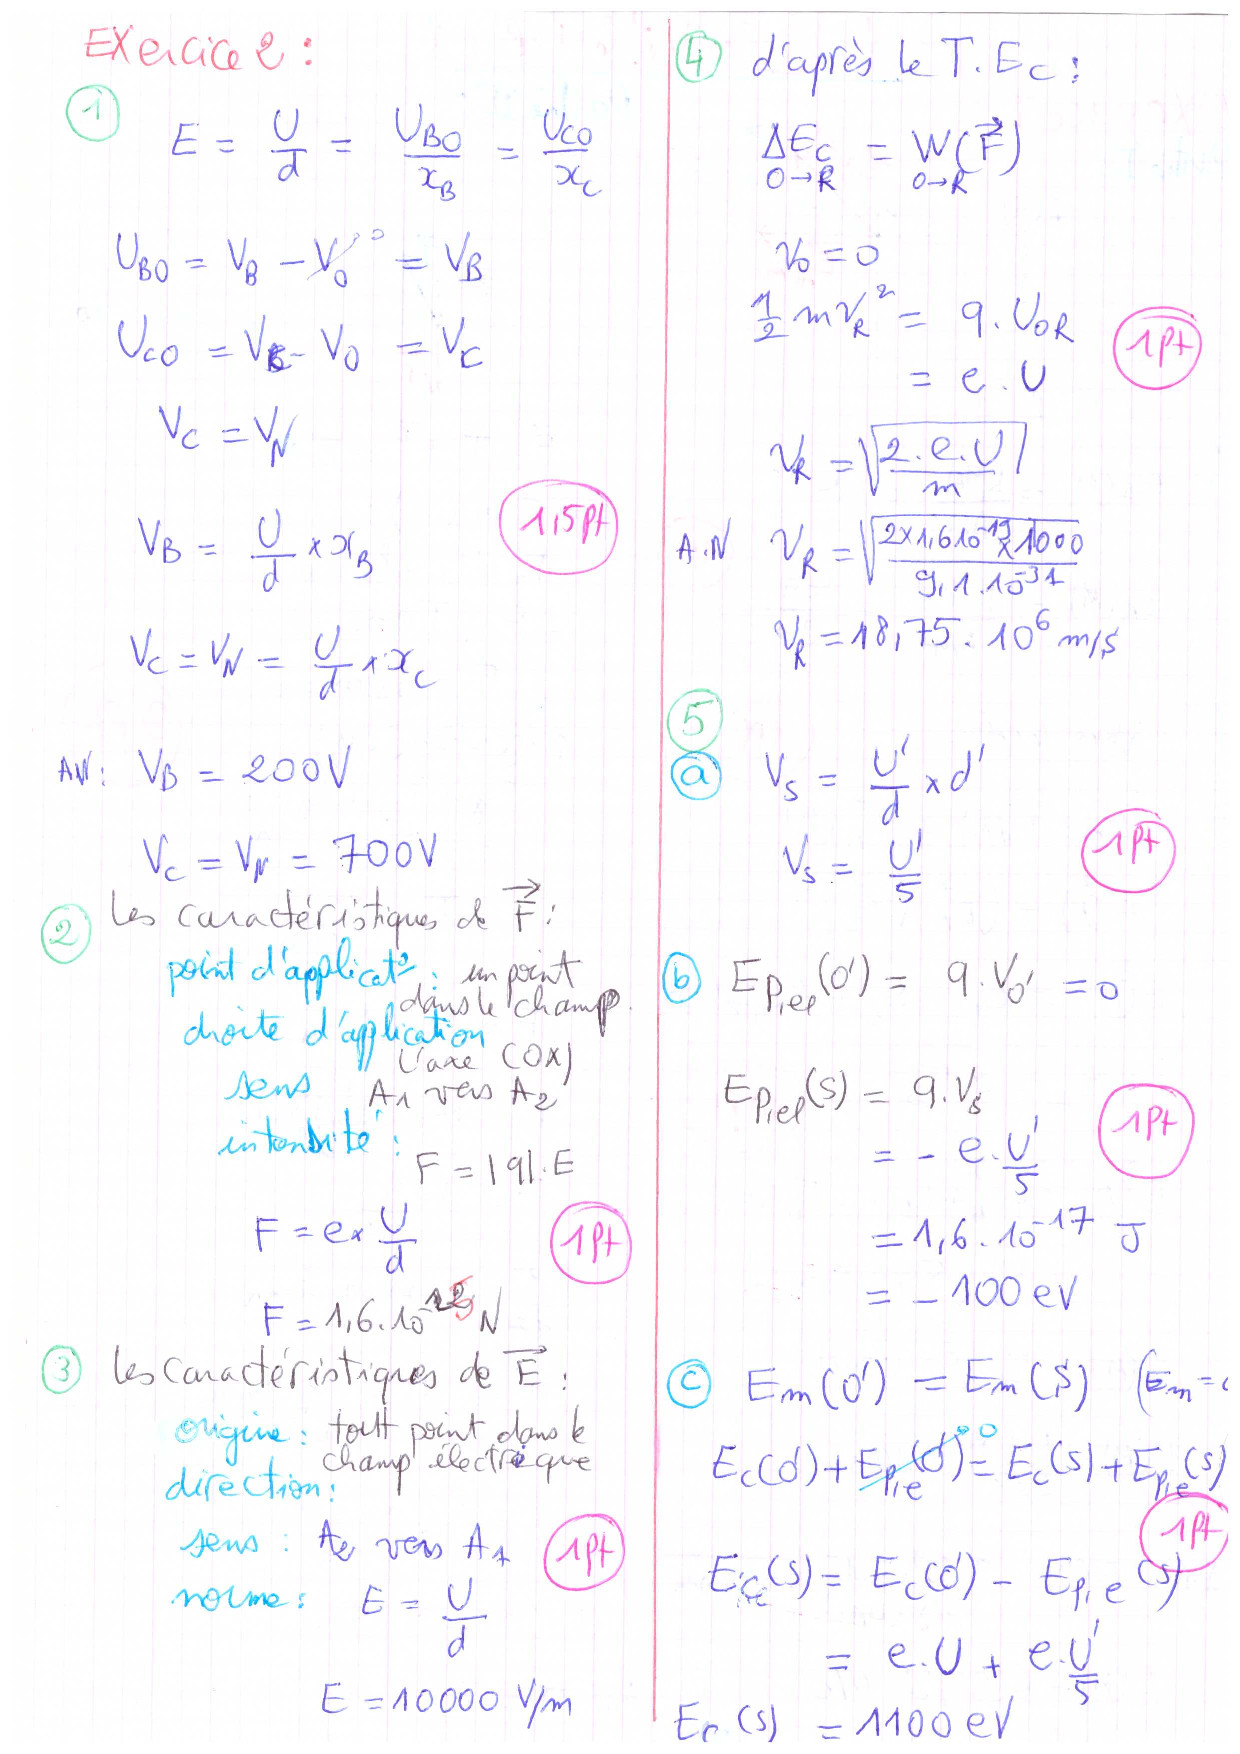 Exercice 2 :
1
E = U/d = U_BO/x_B = U_CO/x_C
U_BO = V_B - V_O = V_B
0
U_CO = V_C - V_O = V_C
V_C = V_N
1,5pt
V_B = U/d × x_B
V_C = V_N = U/d × x_C
AN : V_B = 200V
V_C = V_N = 700V
2
les caractéristiques de F :
point d'applicat° : un point
dans le champ.
droite d'application
l'axe (OX)
sens A1 vers A2
intensité :
F = |q|.E
F = e × U/d
1pt
F = 1,6.10^-15 N
3
les caractéristiques de E :
origine : tout point dans le
champ électrique
direction :
sens : A2 vers A1
1pt
norme : E = U/d
E = 10000 V/m
4
d'après le T.Ec :
ΔEc = W(F)
O→R O→R
v0 = 0
1/2 m V_R² = q.U_OR
1pt
= e.U
V_R = √(2.e.U/m)
A.N V_R = √(2×1,6 10^-19×1000/9,1.10^-31)
V_R = 18,75.10^6 m/s
5
a
V_S = U'/d × d'
V_S = U'/5
1pt
b
E_p,el(O') = q.V_O' = 0
E_p,el(S) = q.V_S
1pt
= - e.U'/5
= 1,6.10^-17 J
= - 100 eV
c
Em(O') = Em(S) (Em =
Ec(O') + Ep,e(O') = Ec(S) + Ep,e(S)
0
1pt
Ec(S) = Ec(O') - Ep,e(S)
= e.U + e.U'/5
Ec(S) = 1100 eV